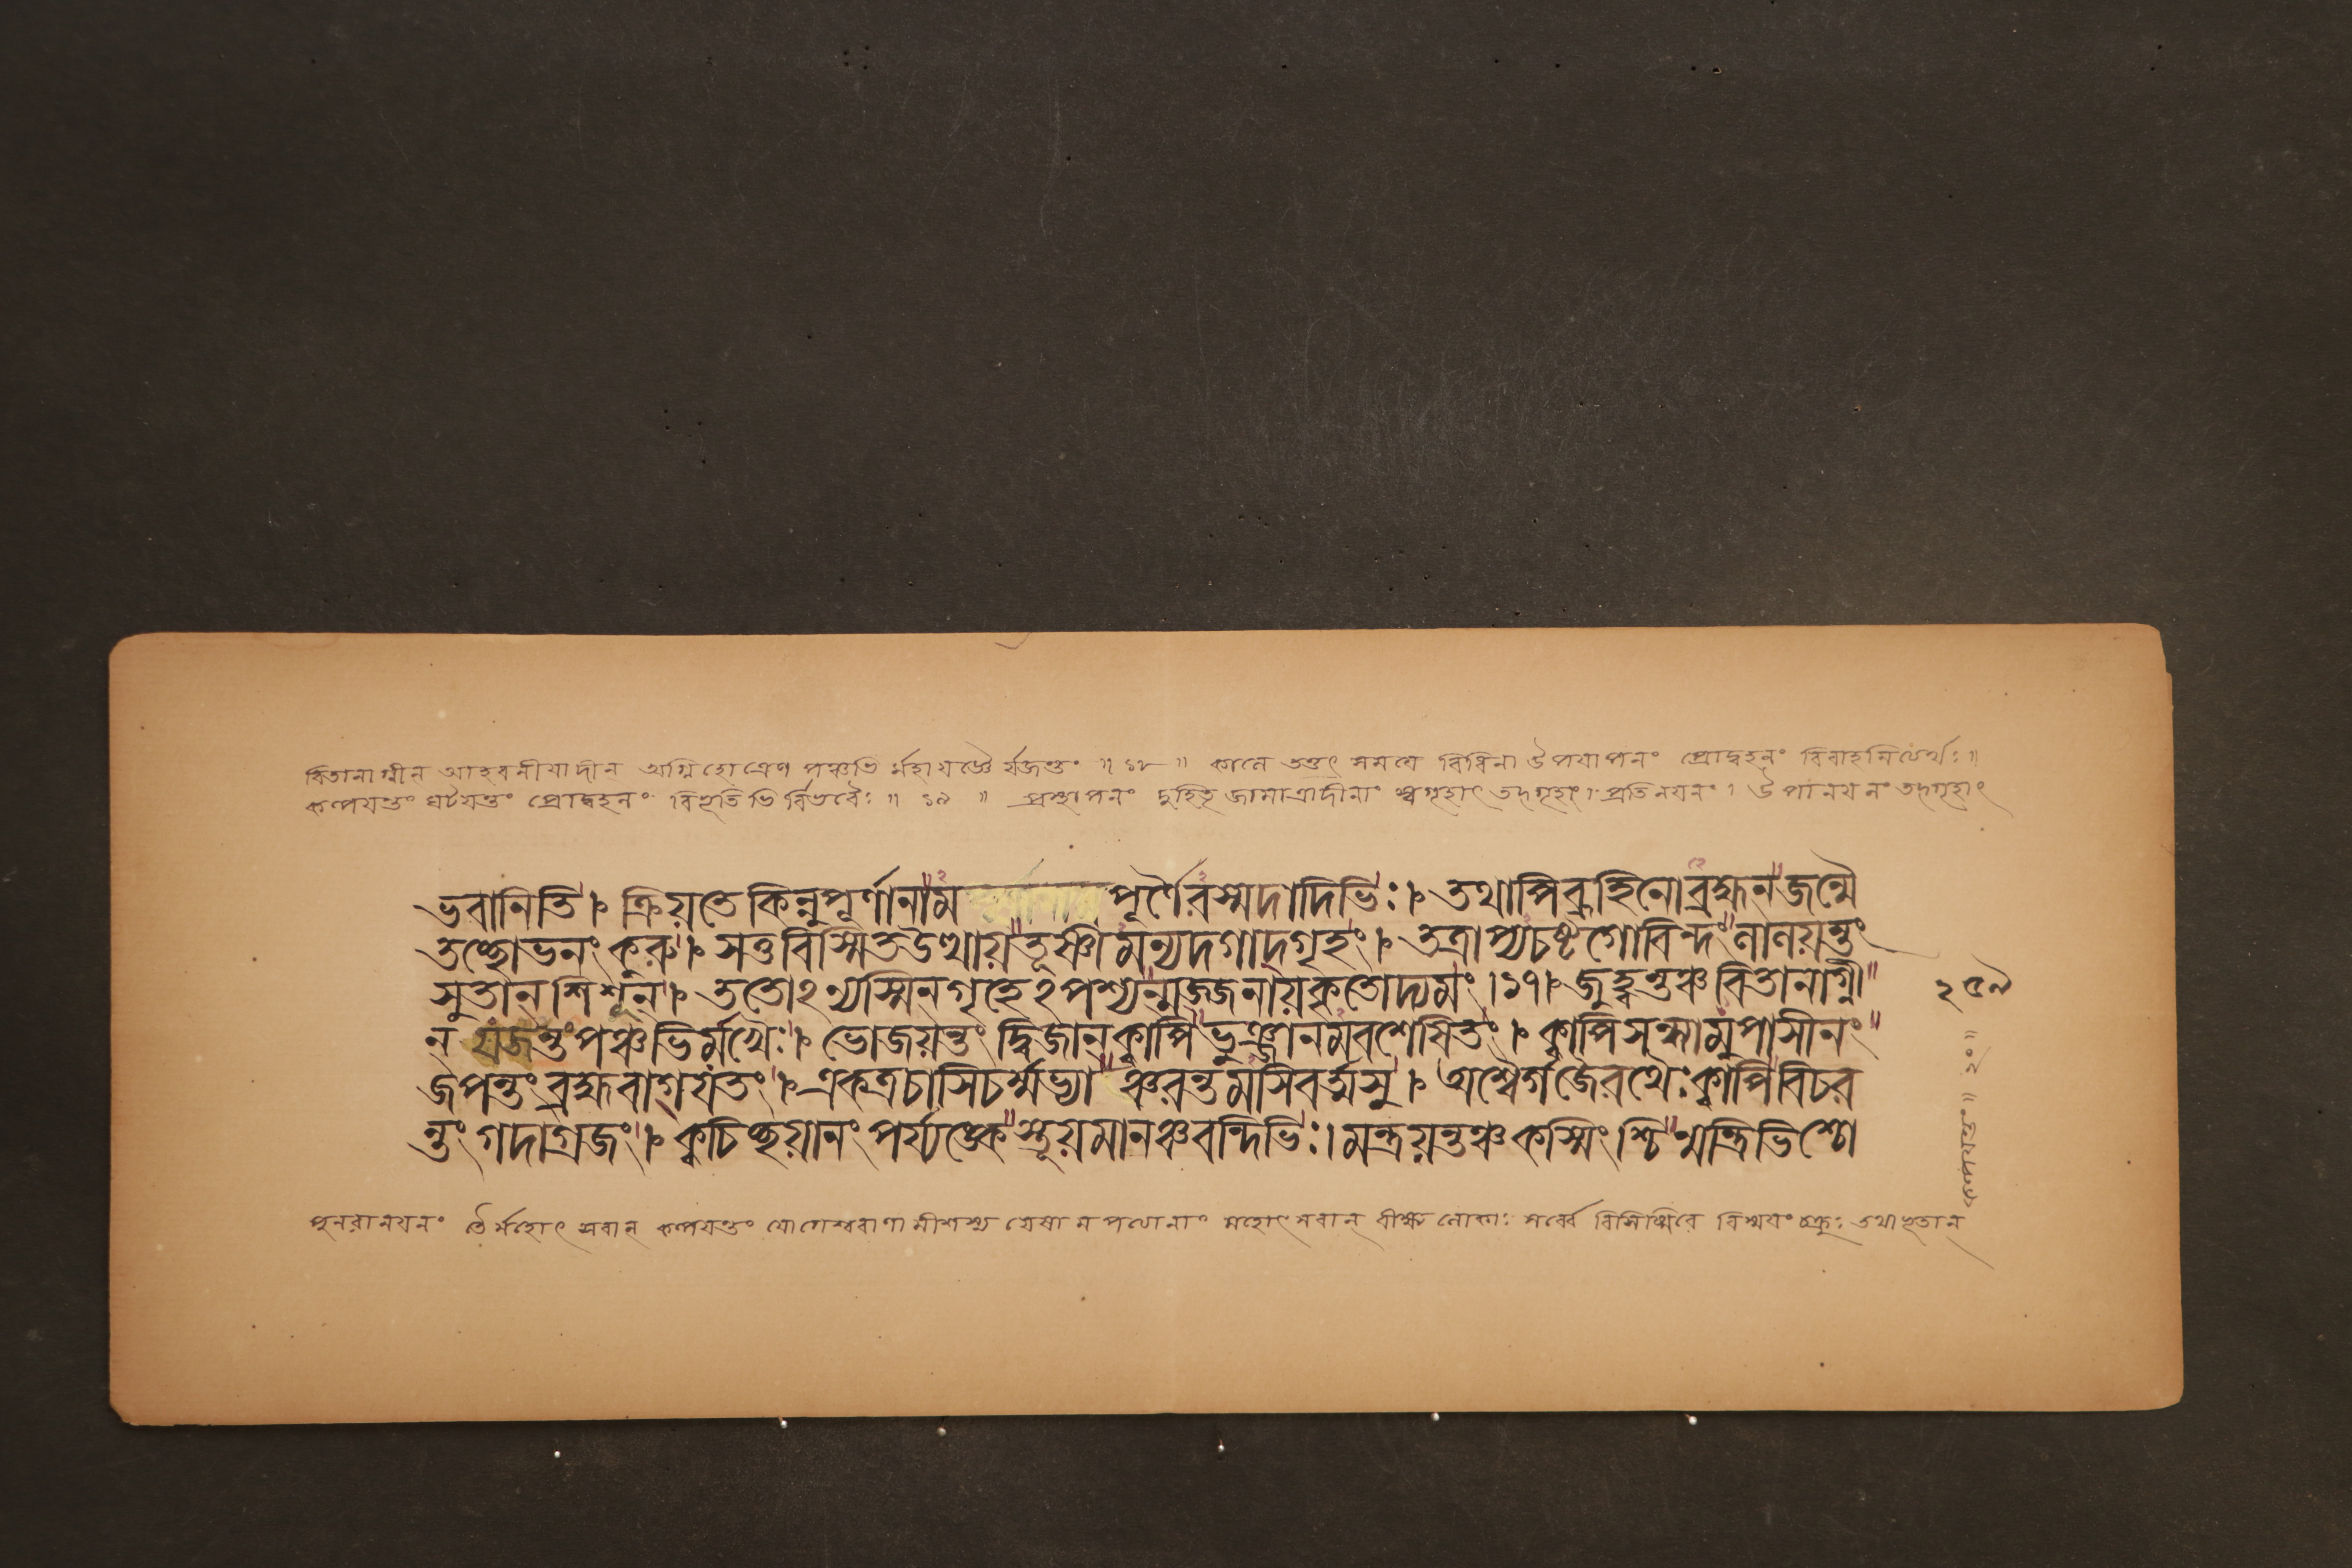 বিতানাগ্নীন আহবনীয়াদীন অগ্নিহোত্রেণ পঞ্চভি র্মহাযজ্ঞৈ র্যজন্তং ॥ ১৮ ॥ কালে তত্তৎ সময়ে বিধিনা উপযাপনং প্রোদ্বহনং বিবাহমিত্যর্থঃ ॥
কল্পয়ন্তং ঘটয়ন্তং প্রোদ্বহনং বিভূতিভি র্বিভবৈঃ ॥ ১৯ ॥ প্রস্থাপনং দুহিতৃ জামাত্রাদীনাং স্বগৃহাৎ তদ্গৃহং। প্রতিনয়নং। উপানয়নং তদ্গৃহাৎ
ভবানিতি।৮ ক্রিয়তে কিন্নু পূর্ণানাম পূর্ণৈরস্মদাদিভিঃ।৮ তথাপি ব্রূহিনো ব্রহ্মন জন্মৈ
তচ্ছোভনং করু।৮ সতু বিস্মিত উত্থায় তূষ্ণীমন্যদগাদ্গৃহং।৮ তত্রাপ্যচষ্ট গোবিন্দং লালয়ন্তং
সুতান শিশূন্।৮ ততোঽন্যস্মিন গৃহেঽপশ্যন্মজ্জনায় কৃতোদ্যমং।১৭।৮ জুহ্বন্তঞ্চ বিতানাগ্নী
ন্ যজন্তং পঞ্চভির্মখৈঃ।৮ ভোজয়ন্তং দ্বিজান্ ক্বাপি ভুঞ্জানমবশেষিতং।৮ ক্বাপি সন্ধ্যামুপাসীনং
জপন্তং ব্রহ্ম বাগ্যতং।৮ একত্র চাসিচর্ম্মভ্যা ঞ্চরন্তমসিবর্ত্মসু।৮ অশ্বৈর্গজৈরথৈঃ ক্বাপি বিচর
ন্তং গদাগ্রজং।৮ ক্বচিচ্ছয়ানং পর্য্যঙ্কে স্তূয়মানঞ্চ বন্দিভিঃ। মন্ত্রয়ন্তঞ্চ কস্মিংশ্চি ন্মন্ত্রিভিশ্চো
২৫৯
কল্পয়ন্তং॥ ২০॥
পুনরানয়নং র্মহোৎসবান কল্পয়ন্তং যোগেশ্বরাণামীশস্য যেষাম পত্যানাং মহোৎসবান্ বীক্ষ্য লোকাঃ সর্ব্বে বিসিস্মিরে বিস্ময়ং চক্রুঃ তথাভূতান্